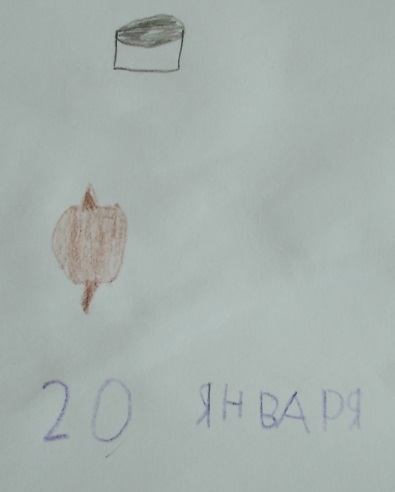 20 ЯНВАРЯ